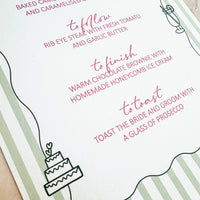 BAKED CAM
AND CARAMELISED
to follow
RIB EYE STEAK WITH FRESH TOMATO
AND GARLIC BUTTER
to finish
WARM CHOCOLATE BROWNIE WITH
HOMEMADE HONEYCOMB ICE CREAM
to toast
TOAST THE BRIDE AND GROOM WITH
A GLASS OF PROSECCO